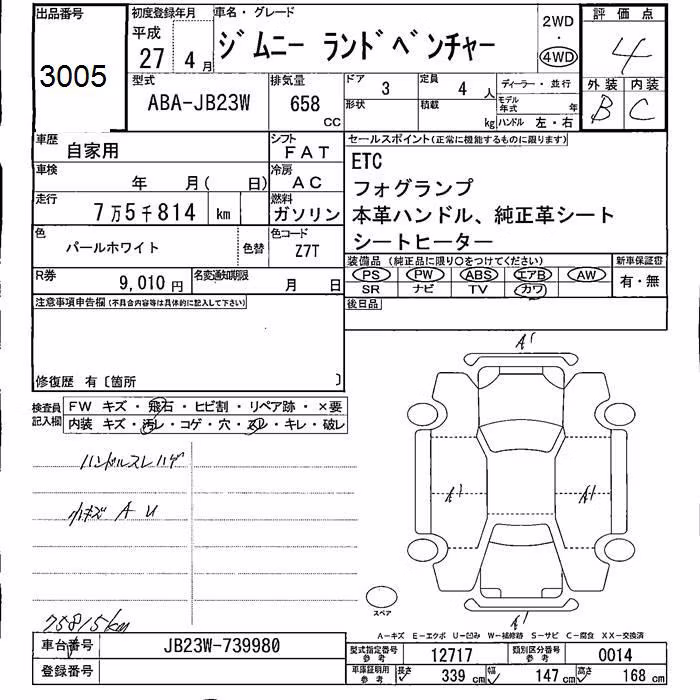 出品番号
3005
初度登録年月
平成
27 4月
車名・グレード
ジムニー ランドベンチャー
2WD
・
4WD
評価点
4
外装 内装
B C
型式
ABA-JB23W
排気量
658
CC
ドア 3
定員 4 人
ディーラー・並行
形状
積載
kg
モデル年式 年
ハンドル 左・右
車歴
自家用
シフト
FAT
車検
年 月( 日)
冷房
AC
走行
7万5千814 km
燃料
ガソリン
色
パールホワイト
色替
色コード
Z7T
R券
9,010円
名変通知期限
月 日
セールスポイント(正常に機能するものに限ります)
ETC
フォグランプ
本革ハンドル、純正革シート
シートヒーター
装備品 (純正品に限り○をつけてください)
新車保証書
PS PW ABS エアB AW
SR ナビ TV カワ
有・無
後日品
注意事項申告欄(不具合内容等は具体的に記入して下さい)
修復歴 有〔箇所 〕
検査員記入欄
FW キズ・飛石・ヒビ割・リペア跡・×要
内装 キズ・汚レ・コゲ・穴・スレ・キレ・破レ
ハンドルスレハゲ
小キズ A U
75815km
A1
A1
A1
A1
スペア
A−キズ E−エクボ U−凹み W−補修跡 S−サビ C−腐食 XX−交換済
車台番号
JB23W-739980
登録番号
型式指定番号
参考
12717
類別区分番号
参考
0014
車庫証明用
参考
長さ 339 cm 幅 147 cm 高さ 168 cm